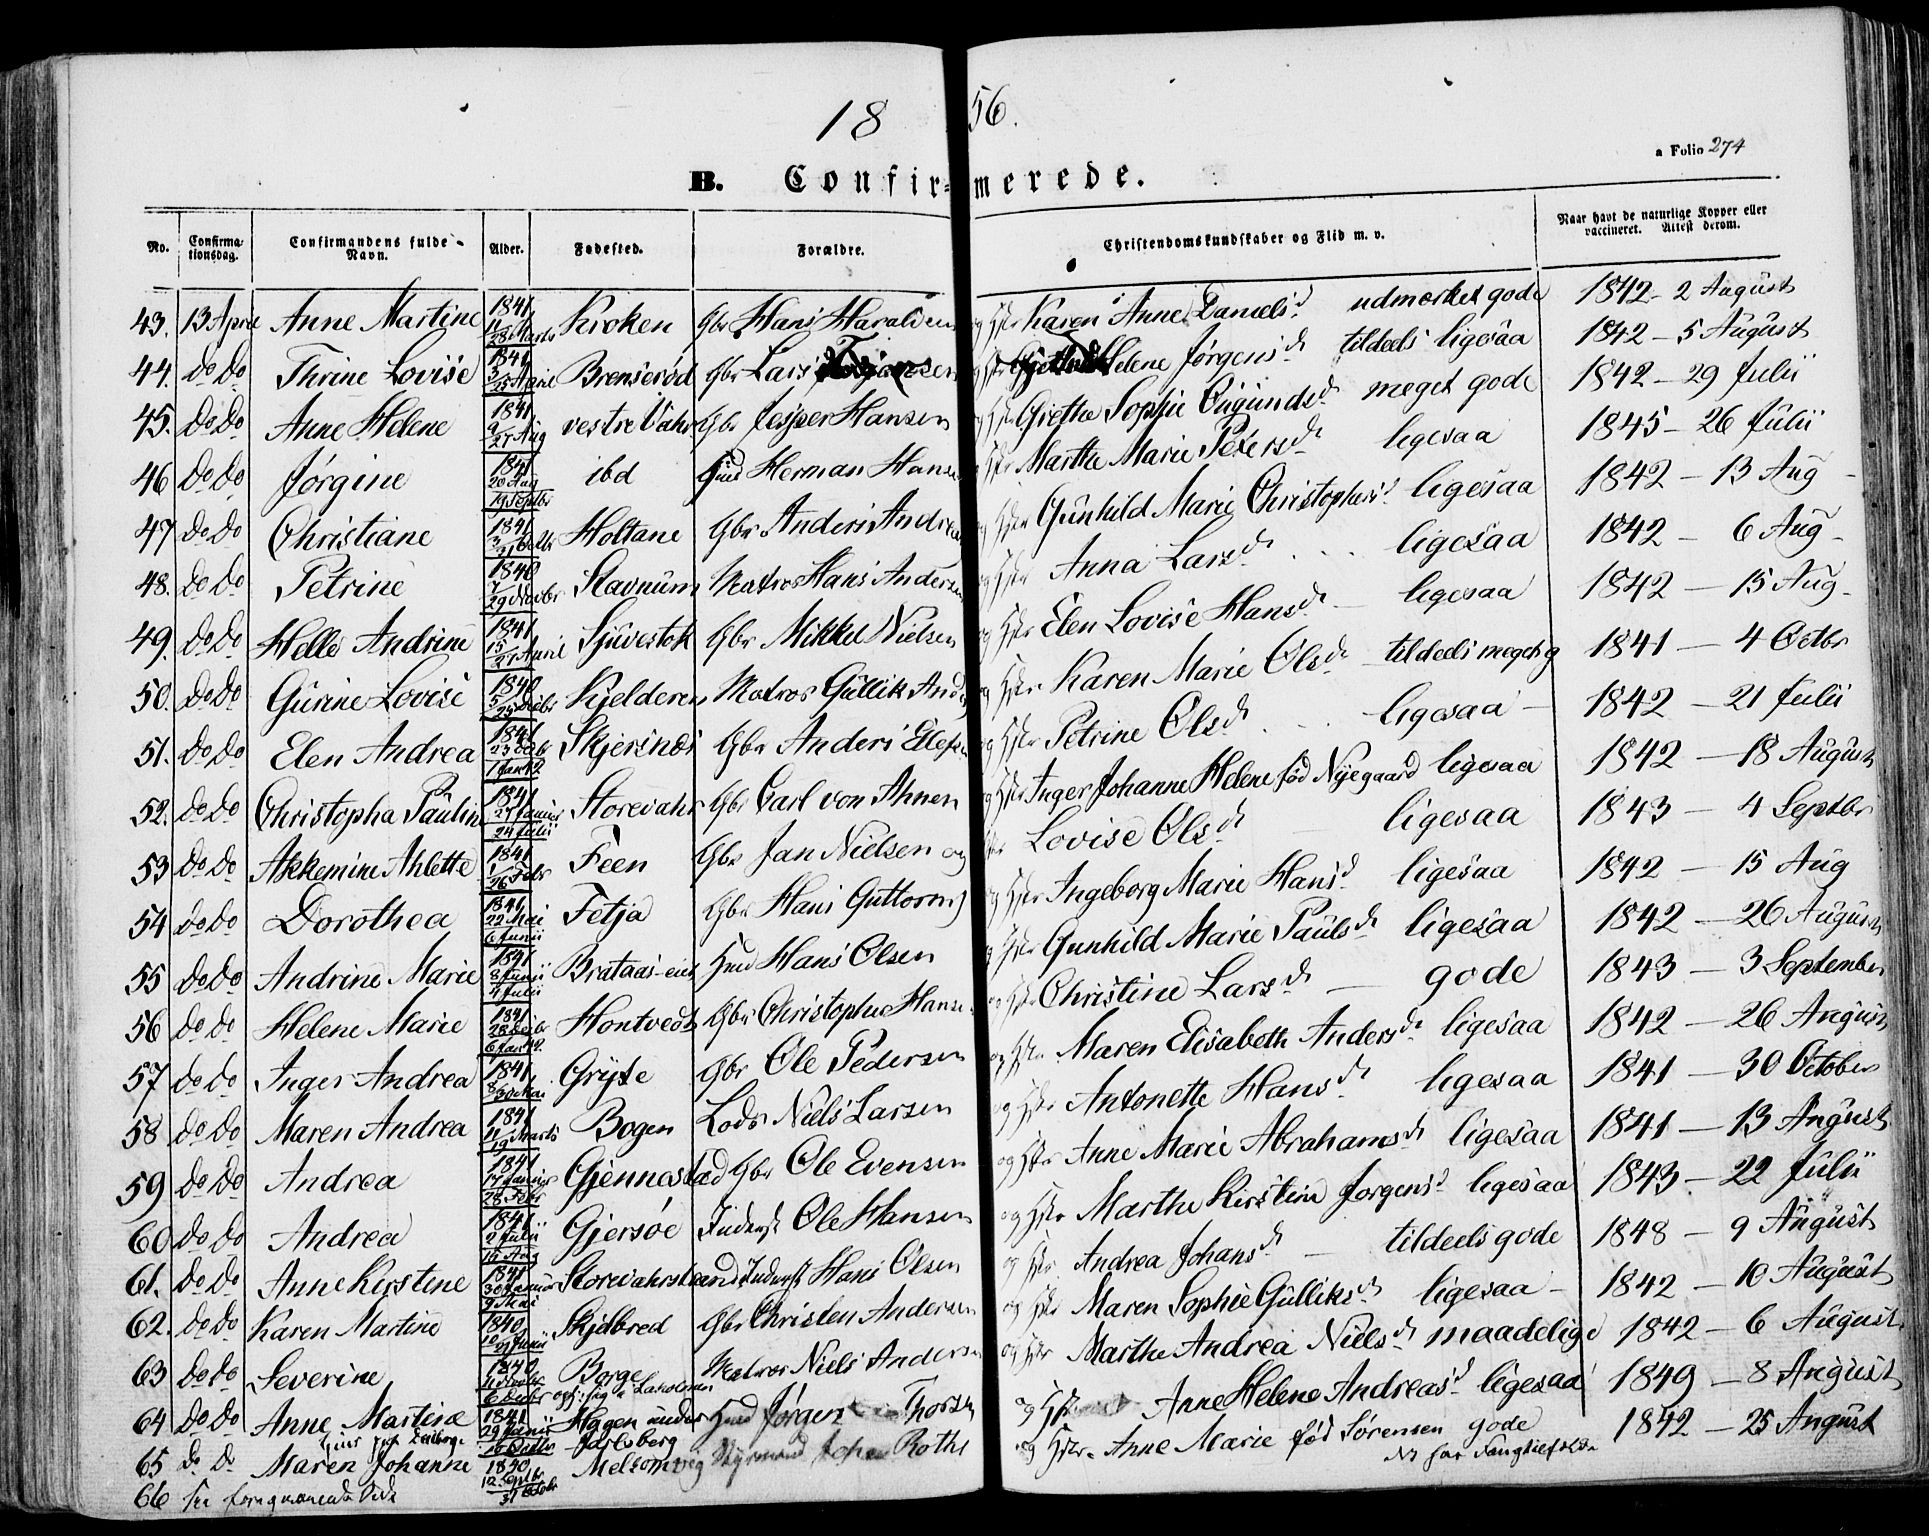 18 56.
a Folio 274
B. Confirmerede.
No. Confirmationsdag. Confirmandens fulde Navn. Alder. Fødested. Forældre. Christendomskundskaber og Flid m. v. Naar havt de naturlige Kopper eller vaccineret. Attest derom.
43. 13 April Anne Martine 1841 11 28 Marts Kroken Gbr Hans Haraldsen og Hstr Karen Anne Daniels d udmærket gode 1842 - 2 August
44. Do Do Thrine Lovise 1841 3 25 April Brenserød Gbr Lars og Hstr Helene Jørgens d tildeels ligesaa 1842 - 5 August
45. Do Do Anne Helene 1841 9 27 Aug vestre Vahr Gbr Jesper Hansen og Hstr Grethe Sophie d meget gode 1842 - 29 Julii
46 Do Do Jørgine 1841 20 Aug 19 Septbr ibd Huusmd Herman Hans og Hstr Marthe Marie Peters d ligesaa 1845 - 26 Julii
47 Do Do Christiane 1841 3 31 Octbr Holtane Gbr Anders Andrea og Hstr Gunhild Marie Christophers d ligesaa 1842 - 13 Aug -
48. Do Do Petrine 1840 7 29 Novbr Stavnum Matros Hans Andersen og Hstr Anna Lars d ligesaa 1842 - 6 Aug -
49. Do Do Helle Andrine 1841 15 27 April Sjuvestok Gbr Mikkel Nielsen og Hstr Elen Lovise Hans d - ligesaa 1842 - 15 Aug -
50. Do Do Gurine Lovise 1840 5 25 Decbr Kjelderen Matros Gullik And og Hstr Karen Marie Ols d - tildeels meget g 1841 - 4 Octbr
51. Do Do Elen Andrea 1841 23 Octbr 1 Jan 42 Skjersnes Gbr Anders Ellefsen og Hstr Petrine Ols d ligesaa - 1842 - 21 Julii
52. Do Do Christopha Pauline 1841 27 Januar 24 Julii Storevahr Gbr Carl von Ahnen og Hstr Inger Johanne Helene fød Nyegaard ligesaa 1842 - 18 August
53 Do Do Akkemine Ahlette 1841 1 26 Febr Feen Gbr Jan Nielsen og Hstr Lovise Ols d ligesaa 1843 - 4 Septbr
54 Do Do Dorothea 1841 22 Mai 6 Junii Fetja Gbr Hans Guttorms og Hstr Ingeborg Marie Hans d ligesaa 1842 - 15 Aug
55 Do Do Andrine Marie 1841 8 Junii 4 Julii Brataas-eiet Huusmd Hans Olsen og Hstr Gunhild Marie Pauls d ligesaa 1842 - 26 August
56 Do Do Helene Marie 1841 28 Decbr 6 Jan 42. Hontvedt Gbr Christopher Hansen og Hstr Christine Lars d - gode 1843 - 3 September
57 Do Do Inger Andrea 1841 8 30 Mai Gryte Gbr Ole Pedersen og Hstr Maren Elisabeth Anders d ligesaa 1842 - 26 August
58 Do Do Maren Andrea 1841 11 19 Marts Bogen Lods Niels Larsen og Hstr Antonette Hans d ligesaa 1841 - 30 October
59 Do Do Andrea 1841 17 Januar 28 Febr Gjennestad Gbr Ole Evensen og Hstr Anne Marie Abrahams d ligesaa 1841 - 13 August
60 Do Do Andrea 1841 2 Julii 15 Aug Gjersøe Inderst Ole Hansen og Hstr Marthe Kirstine Jørgens d ligesaa 1843 - 22 Julii
61. Do Do Anne Kirstine 1841 30 Januar 9 Mai Storevahrstrand Inderst Hans Olsen og Hstr Andrea Johans d - tildeels gode 1848 - 9 August
62. Do Do Karen Martine 1840 10 21 Junii Skjelbred Gbr Christen Andersen og Hstr Maren Sophie Gulliks d ligesaa - 1842 - 10 August
63 Do Do Severine 1840 11 Novbr 6 Decbr Borge Matros Niels Andersen og Hstr Marthe Andrea Niels d maadelige 1842 - 6 August
64 Do Do Anne Martine 1841 29 Junii Hagen under Jarlsberg Huusmd Jørgen Thorsen og Hstr Anne Helene Andreas d ligesaa 1849 - 8 August
65 Do Do Maren Johanne 1840 12 Septbr 31 Octbr Melsomvig Styrmand Johan Roths og Hstr Anne Marie fød Sørensen gode 1842 - 25 August
66 see foregaaende Side